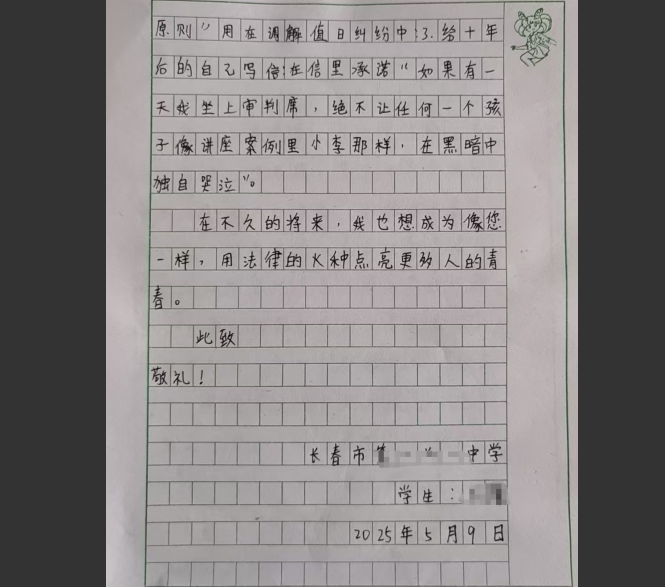 原则"用在调解值日纠纷中；3.给十年
后的自己写信：在信里承诺"如果有一
天我坐上审判席，绝不让任何一个孩
子像讲座案例里小李那样，在黑暗中
独自哭泣"。
在不久的将来，我也想成为像您
一样，用法律的火种点亮更多人的青
春。
此致
敬礼！
长春市第 中学
学生：
2025年5月9日